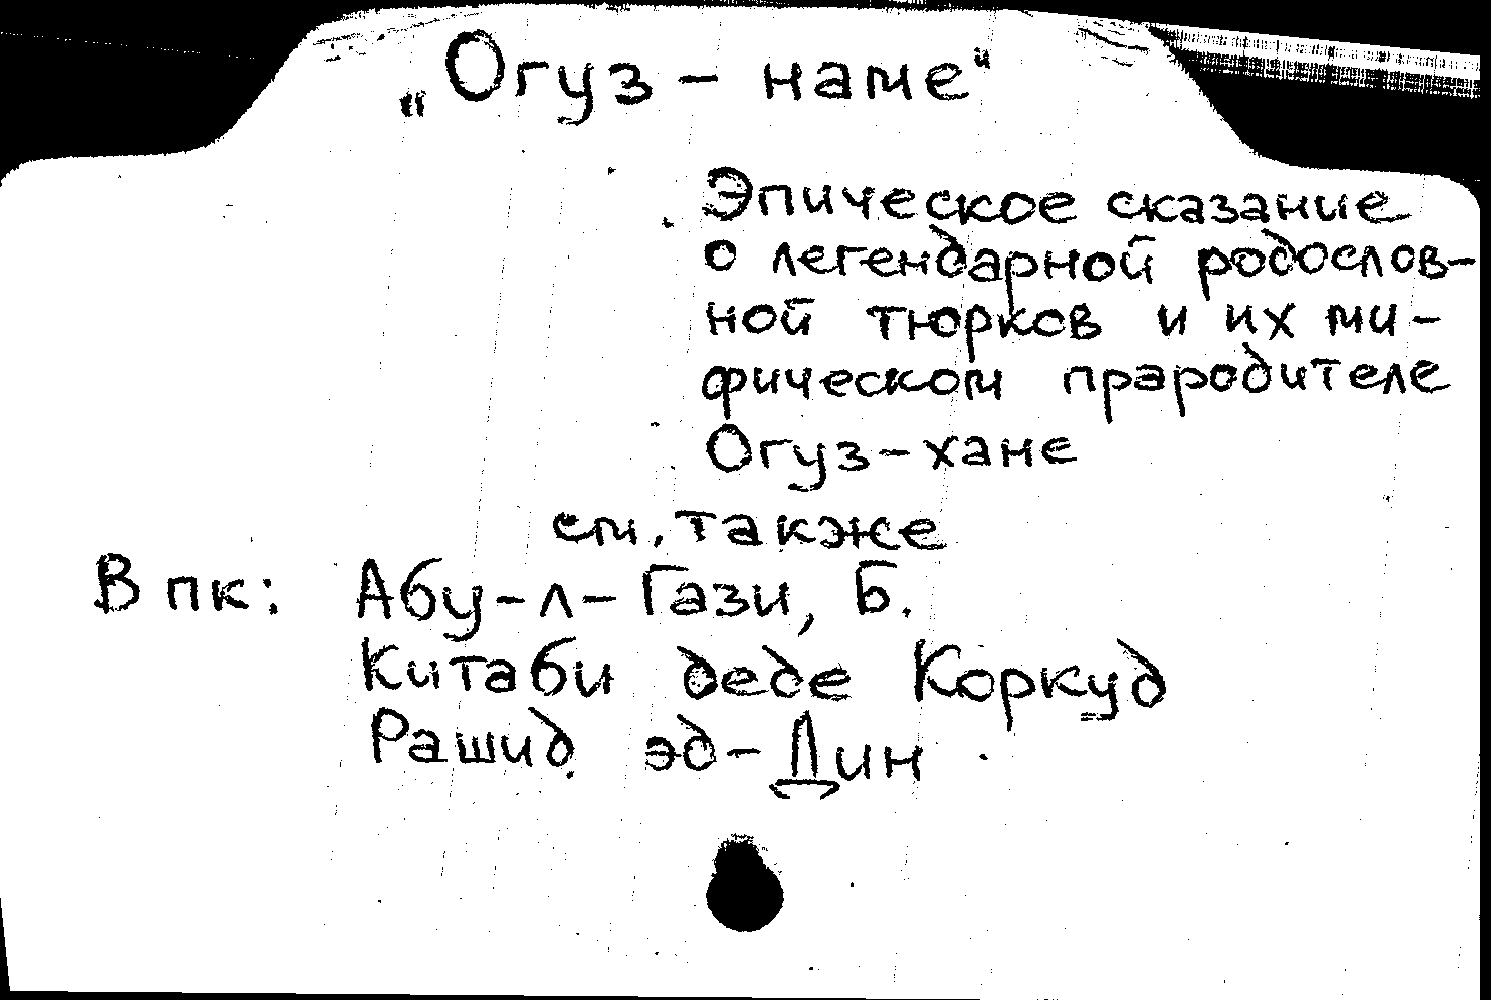 „Огуз - наме"
Эпическое сказание
о легендарной родослов-
ной тюрков и их ми-
фическом прародителе
Огуз-хане
см. также
В пк: Абу-л-Гази, Б.
Китаби деде Коркуд
Рашид эд-Дин